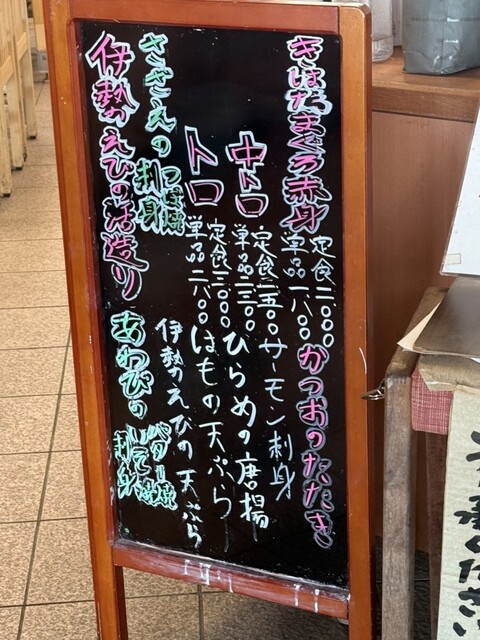 きはだまぐろ赤身
定食二〇〇〇
単品一八〇〇
かつおのたたき
サーモン刺身
中トロ
定食二五〇〇
単品二三〇〇
ひらめの唐揚
トロ
定食三〇〇〇
単品二八〇〇
はもの天ぷら
さざえのつぼ焼
刺身
伊勢のえびの天ぷら
伊勢のえびの活造り
あわびのバター焼
刺身